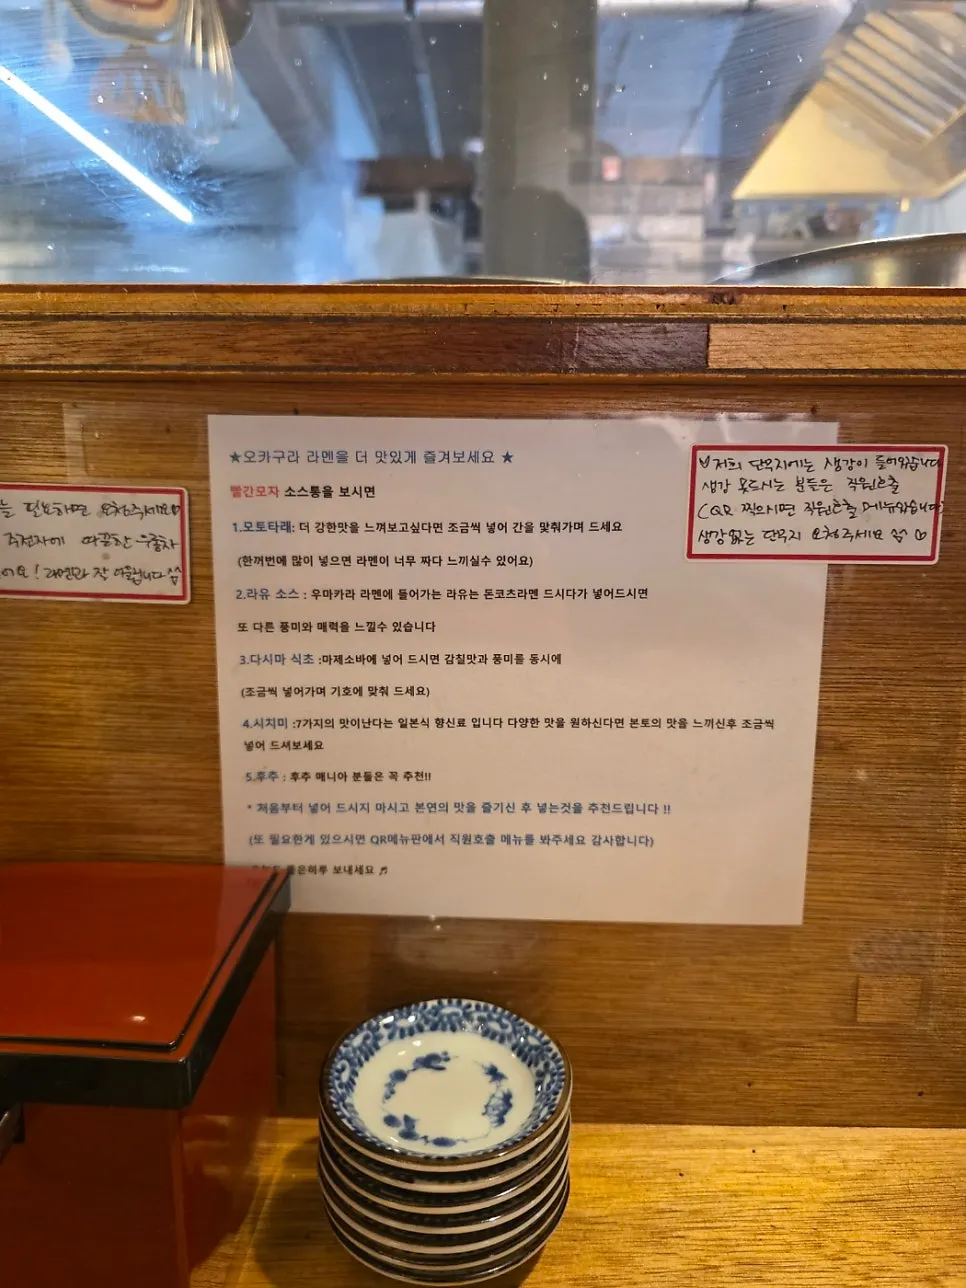 ★오카구라 라멘을 더 맛있게 즐겨보세요 ★
빨간모자 소스통을 보시면
1.모토타래: 더 강한맛을 느껴보고싶다면 조금씩 넣어 간을 맞춰가며 드세요
(한꺼번에 많이 넣으면 라멘이 너무 짜다 느끼실수 있어요)
2.라유 소스 : 우마카라 라멘에 들어가는 라유는 돈코츠라멘 드시다가 넣어드시면
또 다른 풍미와 매력을 느낄수 있습니다
3.다시마 식초 :마제소바에 넣어 드시면 감칠맛과 풍미를 동시에
(조금씩 넣어가며 기호에 맞춰 드세요)
4.시치미 :7가지의 맛이난다는 일본식 향신료 입니다 다양한 맛을 원하신다면 본토의 맛을 느끼신후 조금씩
넣어 드셔보세요
5.후추 : 후추 매니아 분들은 꼭 추천!!
* 처음부터 넣어 드시지 마시고 본연의 맛을 즐기신 후 넣는것을 추천드립니다 !!
(또 필요한게 있으시면 QR메뉴판에서 직원호출 메뉴를 봐주세요 감사합니다)
좋은하루 보내세요 ♬
저희 단무지에는 생강이 들어있습니다
생강 못드시는 분들은 직원호출
(QR 찍으시면 직원호출 메뉴있습니다)
생강없는 단무지 요청주세요 ♡
필요하면 요청주세요♡
주전자에 따끈한 우롱차
어요! 라멘과 잘 어울립니다